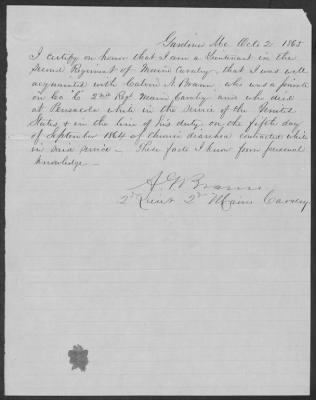 Gardiner Me Oct 2 1865
I certify on honor that I am a Lieutenant in the
Second Regiment of Maine Cavalry, that I was well
acquainted with Calvin J. Brann, who was a private
in Co "C" 2nd Regt Maine Cavalry and who died
at Pensacola while in the Service of the United
States & in the line of his duty, on the fifth day
of September 1864 of chronic diarrhea contracted while
in said service - These facts I know from personal
knowledge -
2d Lieut 2d Maine Cavalry